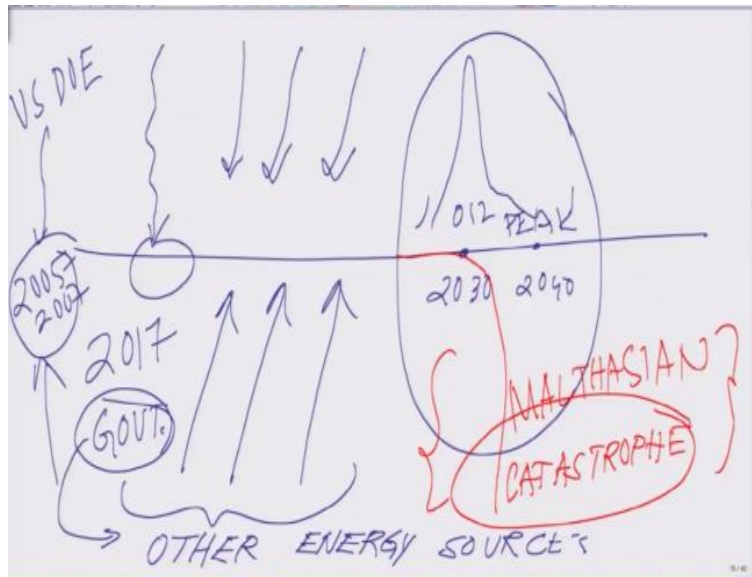 US DOE
OIL PEAK
2005?
2007
2030 2040
2017
MALTHASIAN
GOVT.
CATASTROPHE
OTHER ENERGY SOURCE'S